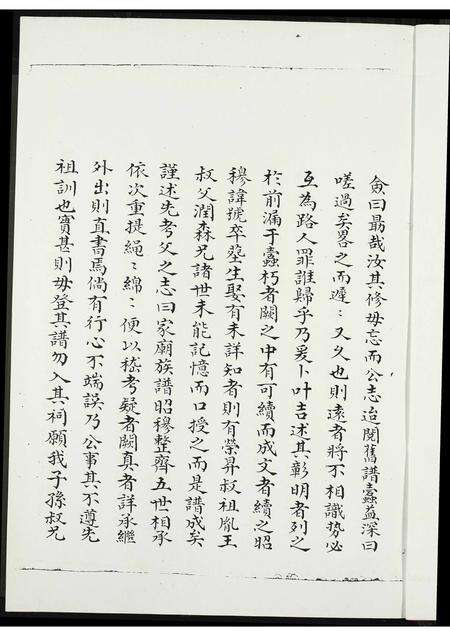 僉曰勗哉汝其修毋忘而公志迨閱舊譜蠹益深曰
嗟過矣畧之而遲〻又久也則遠者將不相識势必
互為路人罪誰歸乎乃爰卜叶吉述其彰明者列之
於前漏于蠹朽者闕之中有可續而成文者續之昭
穆諱號卒塟生娶有未詳知者則有榮昇叔祖胤王
叔父潤森兄諸世未能記憶而口授之而是譜成矣
謹述先考父之志曰家廟族譜昭穆整齊五世相承
依次重提䋲〻綿〻便以稽考疑者闕真者詳承繼
外出則直書焉倘有行心不端誤乃公事其不遵先
祖訓也實甚則毋登其譜勿入其祠願我子孫叔兄